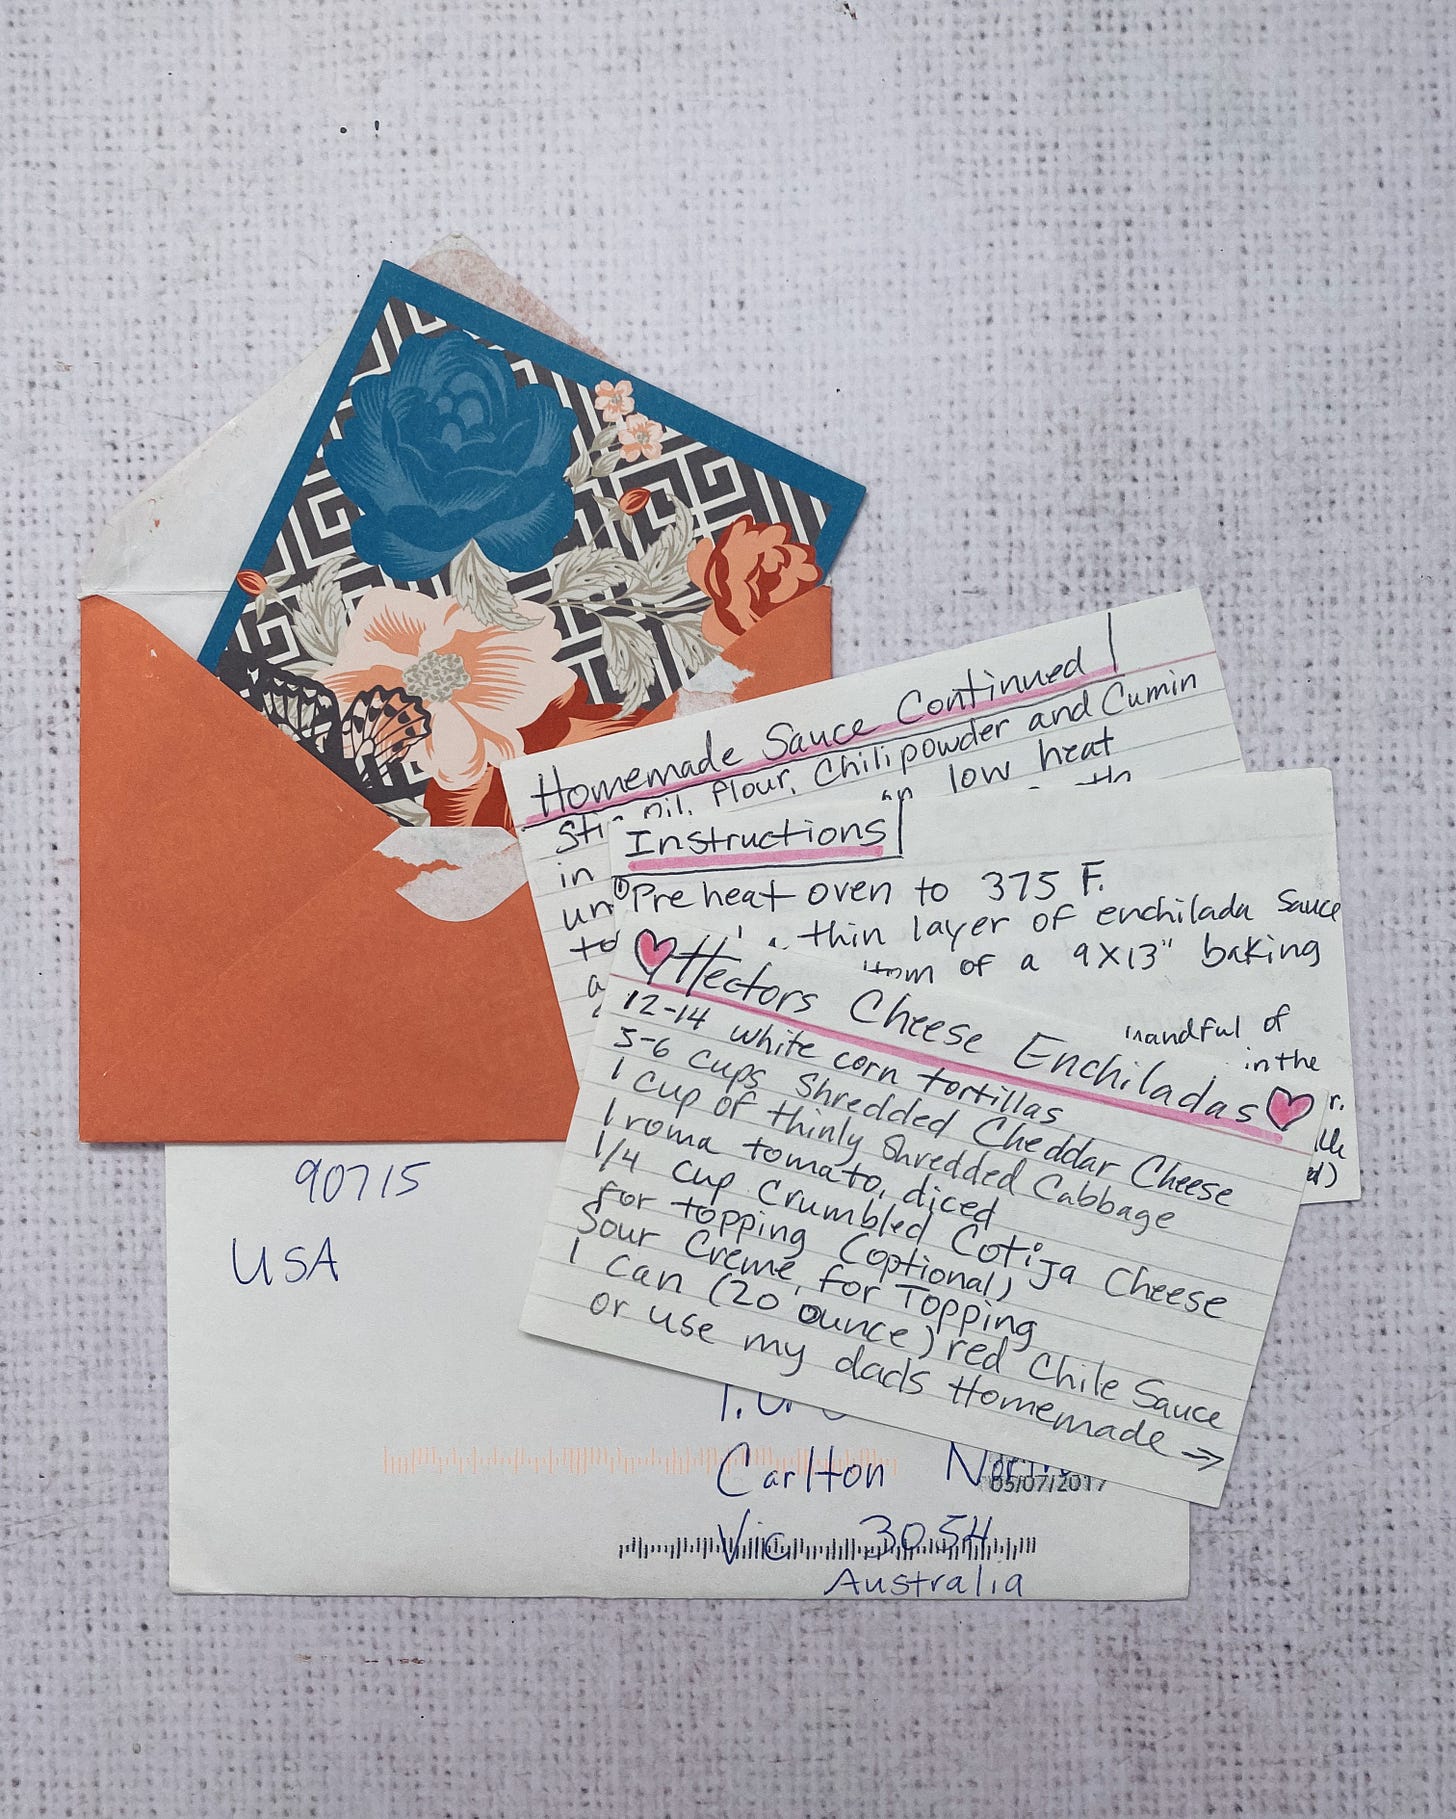 Homemade Sauce Continued
oil, flour, Chili powder and Cumin
in low heat
in
Instructions
① Preheat oven to 375 F.
thin layer of enchilada Sauce
of a 9X13" baking
handful of
in the
Hectors Cheese Enchiladas
12-14 white corn tortillas
5-6 cups Shredded Cheddar Cheese
1 cup of thinly Shredded Cabbage
1 roma tomato, diced
1/4 cup crumbled Cotija Cheese
for topping (optional)
Sour Creme, for Topping
1 can (20 ounce) red Chile Sauce
or use my dads Homemade →
90715
USA
Carlton
05/07/2017
Vic 3054
Australia